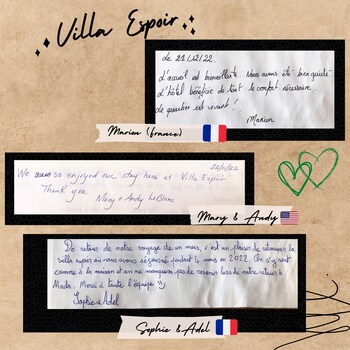 Villa Espoir
Le 21/12/22.
L'accueil est bienveillante. Nous avons été bien guidé
L'hôtel bénéficie de tout le confort nécessaire.
Le quartier est vivant!
Marion
Marion (france)
22/11/22
We so enjoyed our stay here at Villa Espoir
Thank you
Mary & Andy LeBlanc
Mary & Andy
De retour de notre voyage de un mois, c'est un plaisir de retrouver la
villa espoir où nous avons séjourné pendant 4 mois en 2022. On s'y sent
comme à la maison et on ne manquera pas de revenir lors de notre retour à
Mada. Merci à toute l'équipe
Sophie & Adel
Sophie & Adel